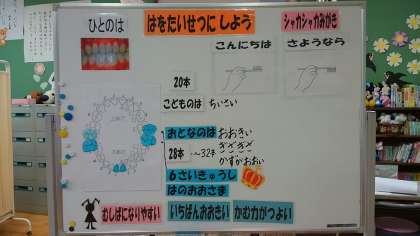 ひとのは
はをたいせつに しよう
シャカシャカみがき
こんにちは
さようなら
20本
こどものは ちいさい
おとなのは おおきい
28本 ～32本
ギザギザ
かずがおおい
6さいきゅうし
はのおおさま
むしばになりやすい
いちばんおおきい
かむ力がつよい